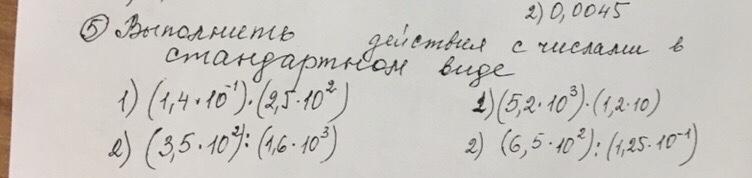 2) 0,0045
⑤ Выполнить действия с числами в
стандартном виде
1) (1,4·10⁻¹)·(2,5·10²)
2) (3,5·10²):(1,6·10³)
1) (5,2·10³)·(1,2·10)
2) (6,5·10²):(1,25·10⁻¹)